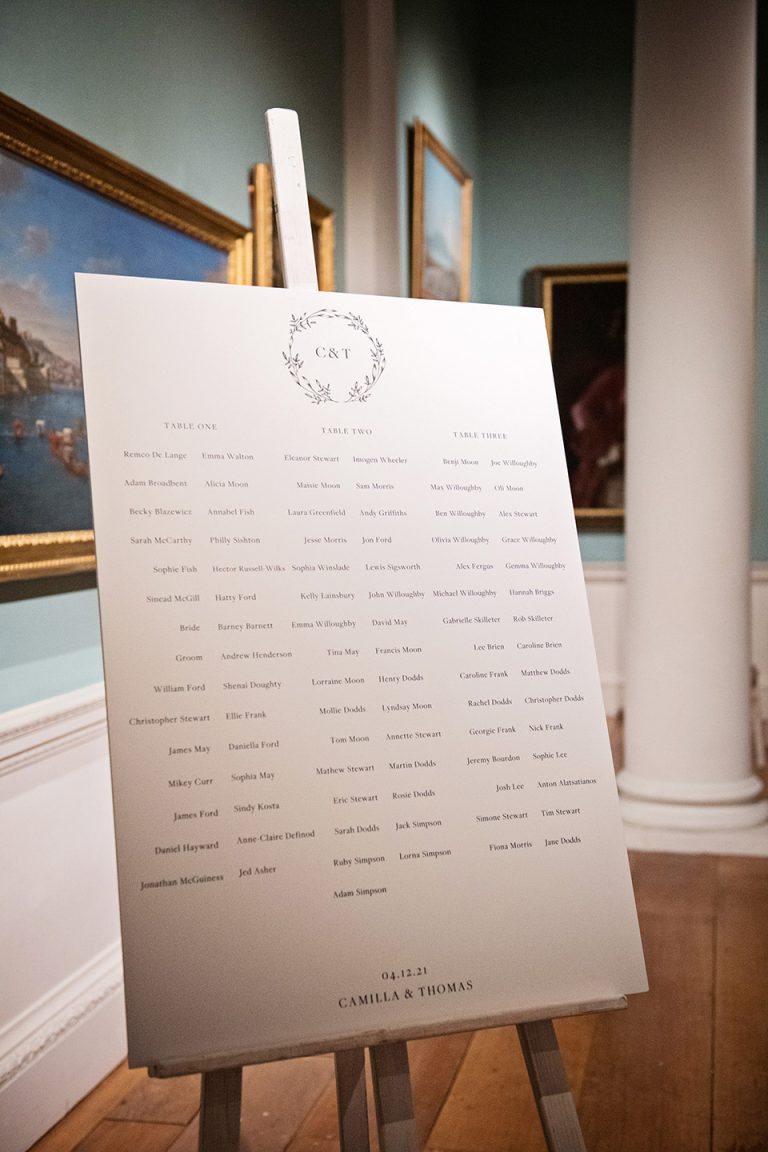 C&T
TABLE ONE
Remco De Lange Emma Walton
Adam Broadbent Alicia Moon
Becky Blazewicz Annabel Fish
Sarah McCarthy Philly Sishton
Sophie Fish Hector Russell-Wilks
Sinead McGill Hatty Ford
Bride Barney Barnett
Groom Andrew Henderson
William Ford Shenai Doughty
Christopher Stewart Ellie Frank
James May Daniella Ford
Mikey Curr Sophia May
James Ford Sindy Kosta
Daniel Hayward Anne-Claire Definod
Jonathan McGuiness Jed Asher
TABLE TWO
Eleanor Stewart Imogen Wheeler
Maisie Moon Sam Morris
Laura Greenfield Andy Griffiths
Jesse Morris Jon Ford
Sophia Winslade Lewis Sigsworth
Kelly Lainsbury John Willoughby
Emma Willoughby David May
Tina May Francis Moon
Lorraine Moon Henry Dodds
Mollie Dodds Lyndsay Moon
Tom Moon Annette Stewart
Mathew Stewart Martin Dodds
Eric Stewart Rosie Dodds
Sarah Dodds Jack Simpson
Ruby Simpson Lorna Simpson
Adam Simpson
TABLE THREE
Benji Moon Joe Willoughby
Max Willoughby Oli Moon
Ben Willoughby Alex Stewart
Olivia Willoughby Grace Willoughby
Alex Fergus Gemma Willoughby
Michael Willoughby Hannah Briggs
Gabrielle Skilleter Rob Skilleter
Lee Brien Caroline Brien
Caroline Frank Matthew Dodds
Rachel Dodds Christopher Dodds
Georgie Frank Nick Frank
Jeremy Bourdon Sophie Lee
Josh Lee Anton Alatsatianos
Simone Stewart Tim Stewart
Fiona Morris Jane Dodds
04.12.21
CAMILLA & THOMAS